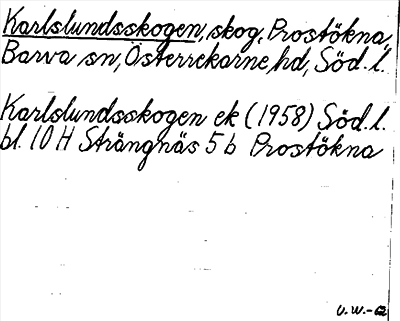 Karlslundsskogen, skog, Prostökna,
Barva sn, Österrekarne hd, Söd. l.
Karlslundsskogen ek (1958) Söd. l.
bl. 10 H Strängnäs 5 b Prostökna